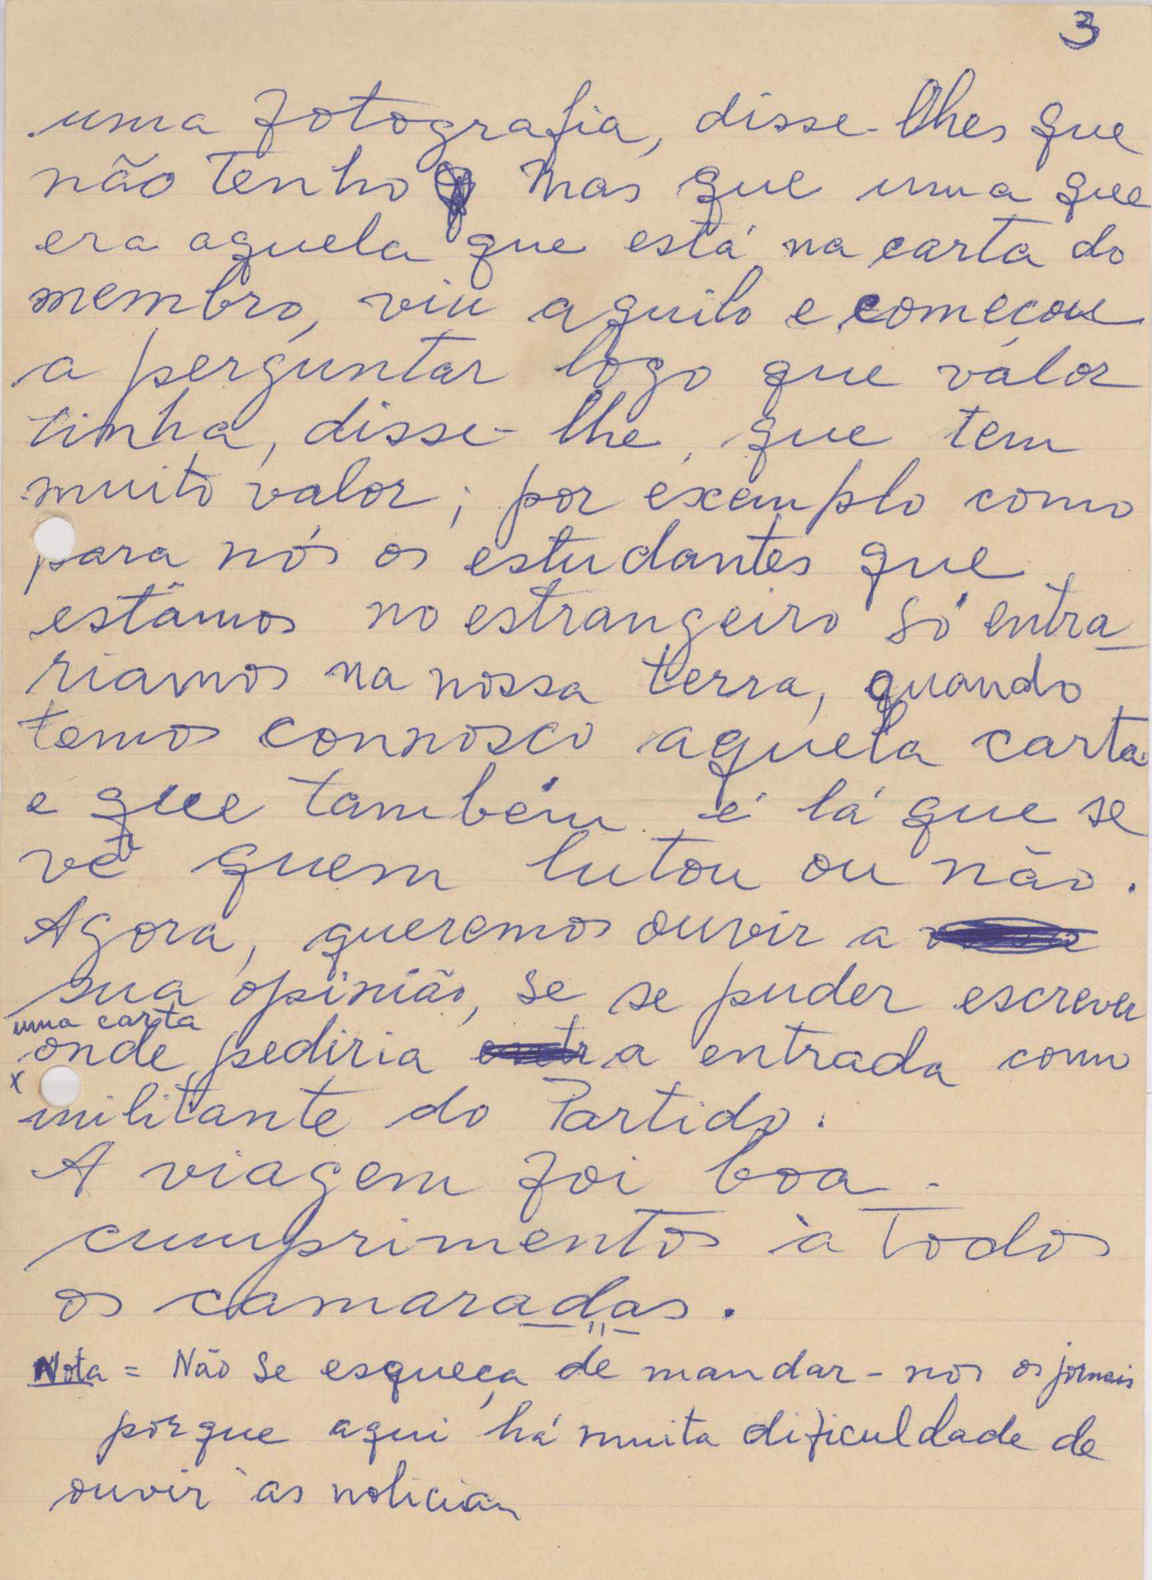 3
uma fotografia, disse-lhes que
não tenho mas que uma que
era aquela que está na carta do
membro, viu aquilo e começou
a perguntar logo que válor
tinha, disse-lhe, que tem
muito valor; por exemplo como
para nós os estudantes que
estâmos no estrangeiro só entra
riamos na nossa terra, quando
temos connosco aquela carta
e que também é lá que se
vê quem lutou ou não.
Agora, queremos ouvir a
sua opinião, se se puder escrever
uma carta
onde pediria a entrada como
x
militante do Partido.
A viagem foi boa -
cumprimentos à todos
os camaradas.
Nota = Não se esqueça de mandar-nos os jornais
porque aqui há muita dificuldade de
ouvir as noticias